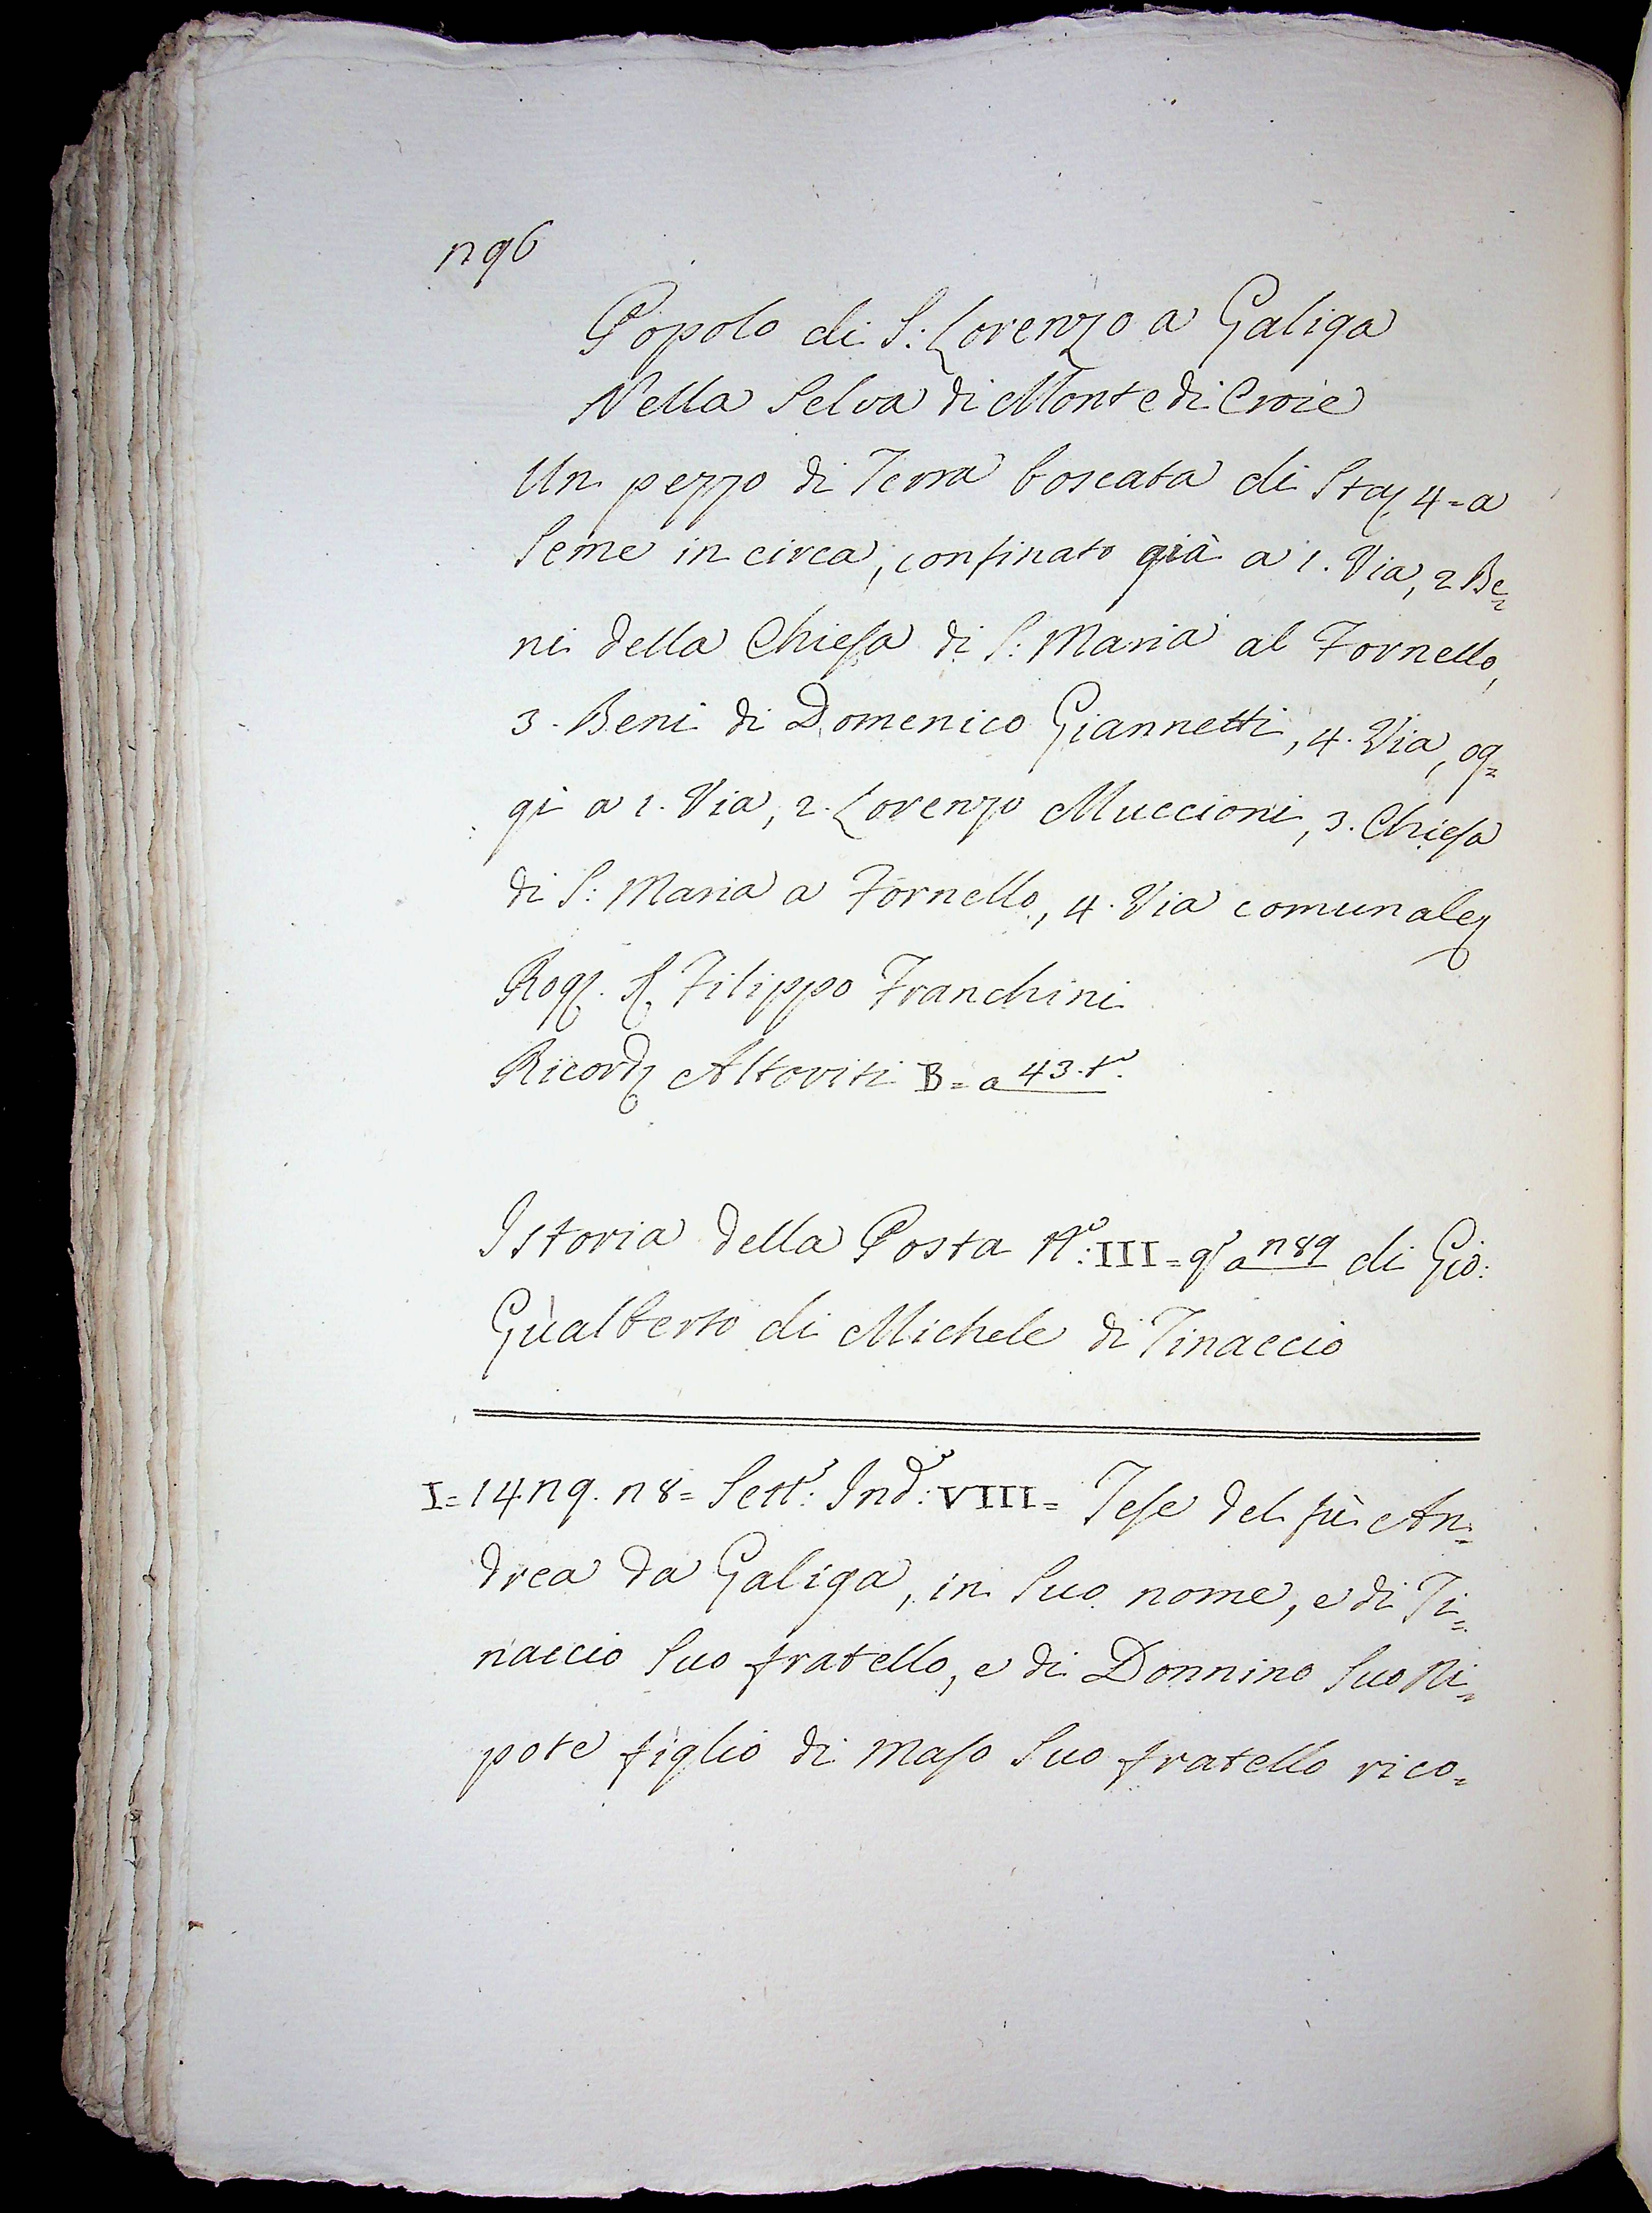 296
Popolo di S: Lorenzo a Galiga
Nella Selva di Monte di Croie
Un pezzo di Terra boscata di Staj 4 = a
Seme in circa, confinato già a 1. Via, 2 Be=
ni della Chiesa di S: Maria al Fornello,
3. Beni di Domenico Giannetti, 4. Via, og=
gi a 1. Via, 2. Lorenzo Muccioni, 3. Chiesa
di S: Maria a Fornello, 4. Via comunale
Rog. S. Filippo Franchini
Ricord Altoviti B = a 43. t°.
Istoria della Posta N°: III = q° a 289 di Gio:
Gualberto di Michele di Tinaccio
I = 1429. 28 = Sett: Ind: VIII = Tese del fù An=
drea da Galiga, in Suo nome, e di Ti=
naccio Suo fratello, e di Donnino Suo Ni=
pote figlio di Maso Suo fratello rico=